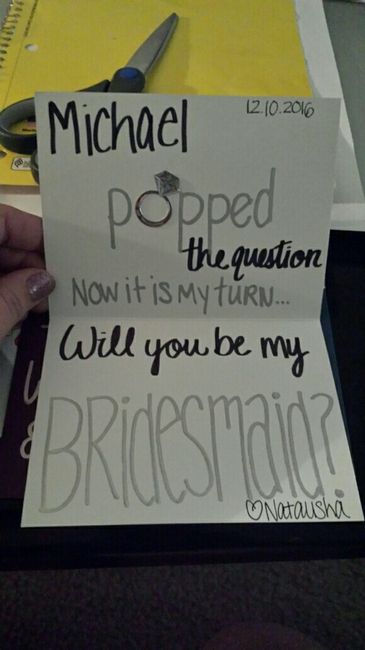 Michael
12.10.2016
popped
the question
NOW it is MY TURN...
Will you be my
BRidesmaid?
♡Natausha